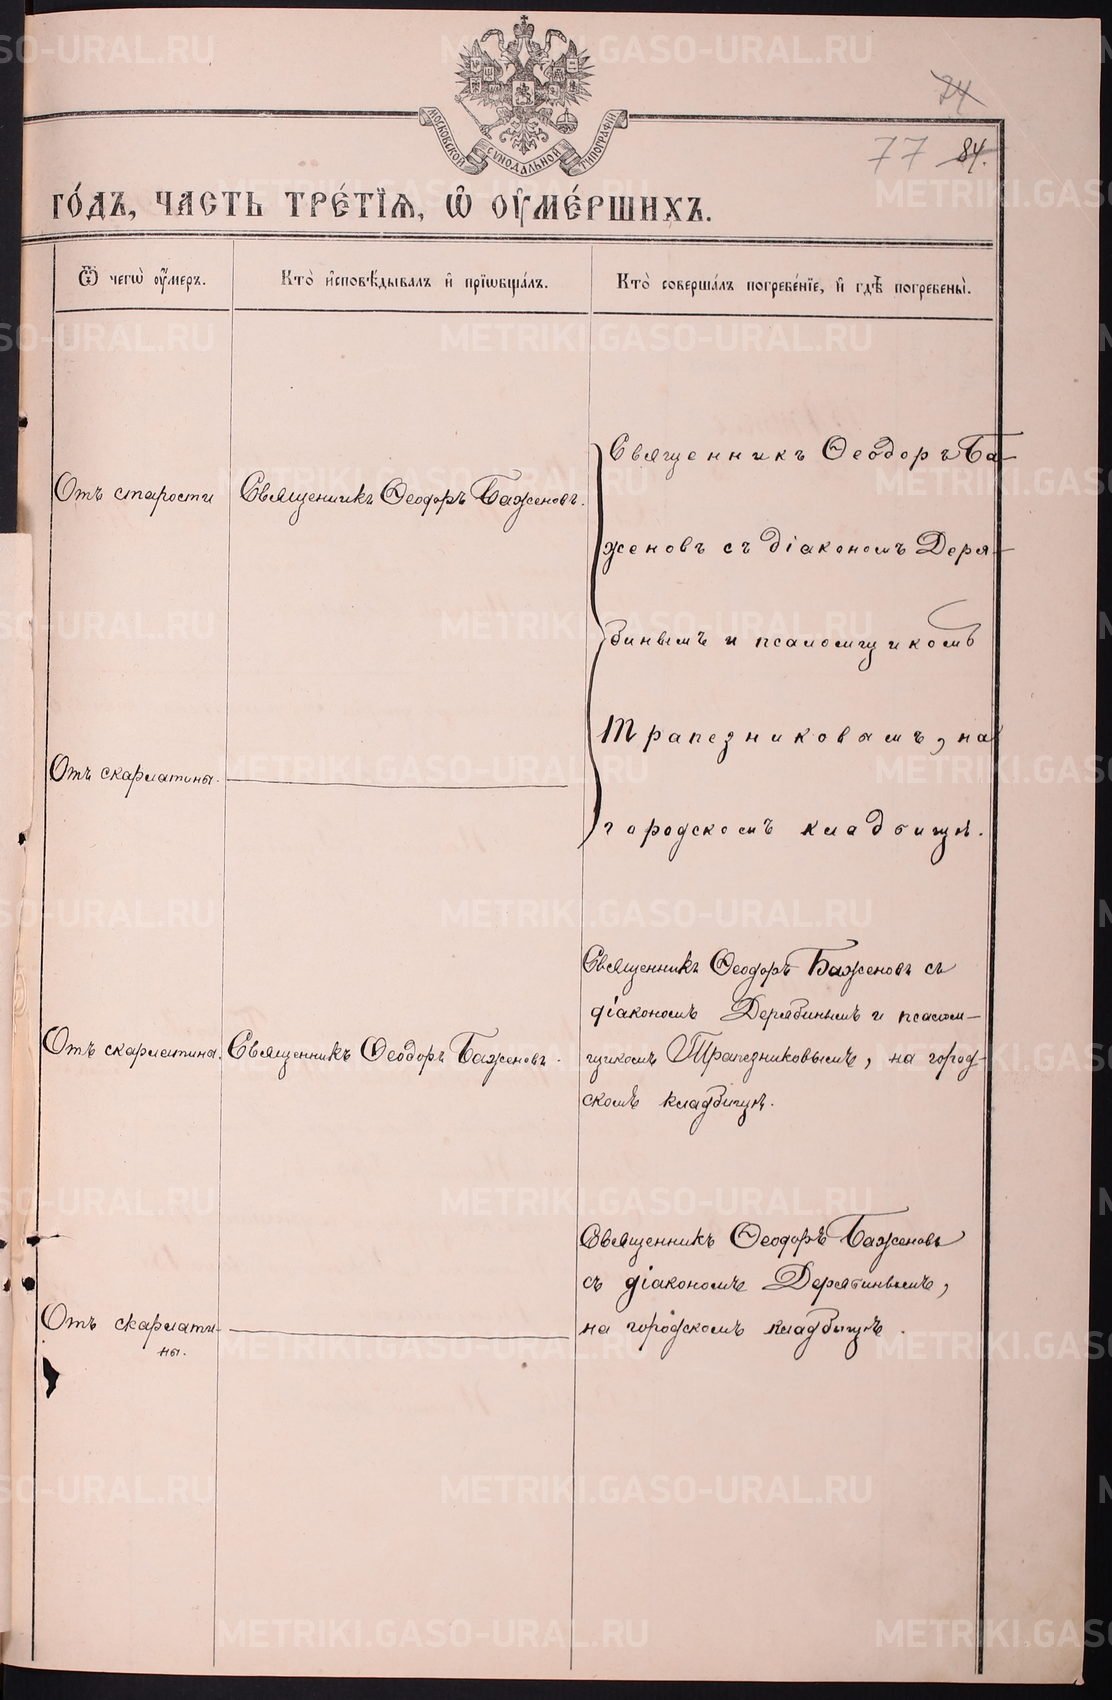 74
77 84.
МОСКОВСКОЙ СѴНОДАЛЬНОЙ ТИПОГРАФІИ
ГО́ДЪ, ЧАСТЬ ТРЕ́ТІѦ, Ѡ҆ ОУ҆МЕ́РШИХЪ.
Ѿ чегѡ̀ оу҆́меръ.
Кто̀ и҆сповѣ́дывалъ и҆ пріѡбща́лъ.
Кто̀ соверша́лъ погребе́нїе, и҆ гдѣ̀ погребены̀.
Отъ старости
Священникъ Ѳеодоръ Баженовъ.
Священникъ Ѳеодоръ Ба-
женовъ съ діакономъ Деря-
бинымъ и псаломщикомъ
Трапезниковымъ, на
городскомъ кладбищѣ.
Отъ скарлатины.
Отъ скарлатины.
Священникъ Ѳеодоръ Баженовъ.
Священникъ Ѳеодоръ Баженовъ съ
діакономъ Дерябинымъ и псалом-
щикомъ Трапезниковымъ, на город-
скомъ кладбищѣ.
Отъ скарлати-
ны.
Священникъ Ѳеодоръ Баженовъ
съ діакономъ Дерябинымъ,
на городскомъ кладбищѣ.
METRIKI.GASO-URAL.RU